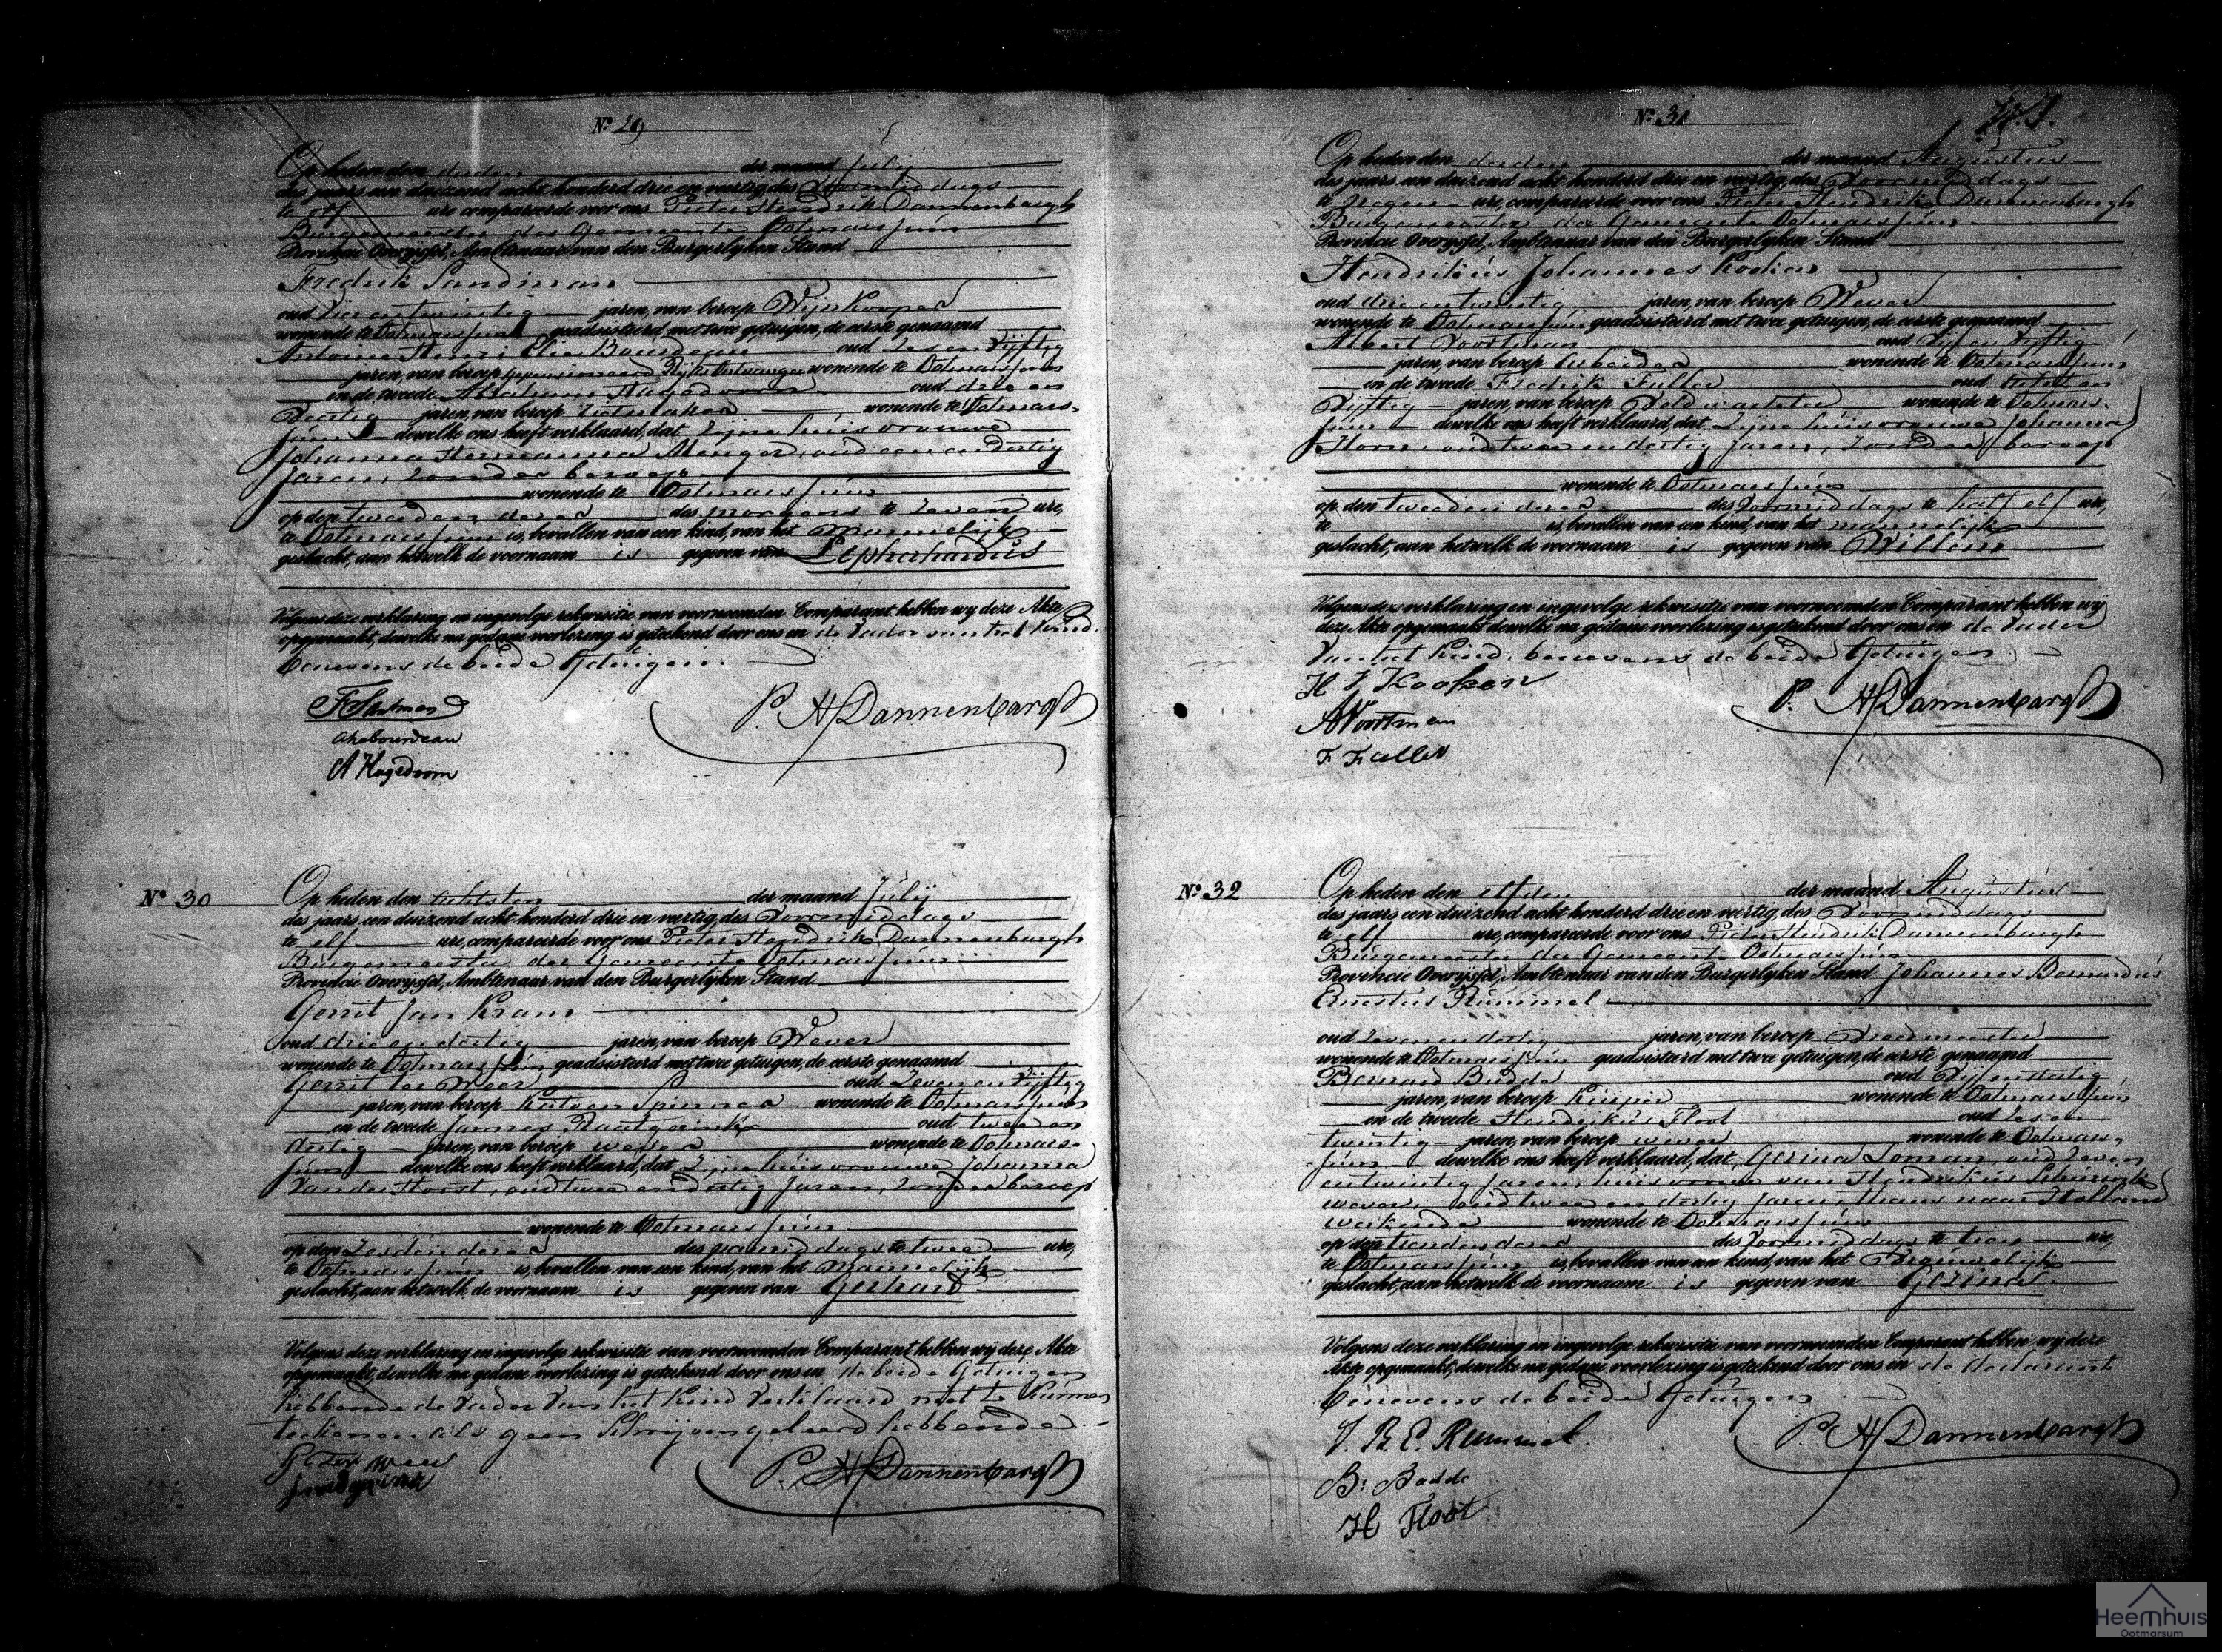 Nº 29
Op heden den derden der maand Julij
des jaars een duizend acht honderd drie en veertig, des Voormiddags
te elf ure, compareerde voor ons Pieter Hendrik Dannenbargh
Burgemeester der Gemeente Ootmarssum
Provincie Overijssel, Ambtenaar van den Burgerlijken Stand
Fredrik
oud Vierentwintig jaren, van beroep Wijnkooper
wonende te Ootmarssum geadsisteerd met twee getuigen, de eerste genaamd
Antonie Henri Elie Bourdeau oud Zes en Vijftig
jaren, van beroep gepensioneerd Rijks Ontvanger wonende te Ootmarssum
en de tweede Abraham Hagedoorn oud drie en
Veertig jaren, van beroep wonende te Ootmars-
sum dewelke ons heeft verklaard, dat Zijne huisvrouwe
Johanna Hermanna Menger, oud een en dertig
Jaren, Zonder beroep
wonende te Ootmarssum
op den tweeden dezer des morgens te Zeven ure,
te Ootmarssum is, bevallen van een kind, van het Mannelijk
geslacht, aan hetwelk de voornaam is gegeven van
Volgens deze verklaring en ingevolge rekwisitie van voornoemden Comparant hebben wij deze Akte
opgemaakt, dewelke na gedane voorlezing is getekend door ons en de Vader van het Kind.
benevens de beide Getuigen.
P. H. Dannenbargh
ahebourdeau
A Hagedoorn
Nº 30
Op heden den achtsten der maand Julij
des jaars een duizend acht honderd drie en veertig, des Voormiddags
te elf ure, compareerde voor ons Pieter Hendrik Dannenbargh
Burgemeester der Gemeente Ootmarssum
Provincie Overijssel, Ambtenaar van den Burgerlijken Stand
Gerrit Jan Kramer
oud drie en dertig jaren, van beroep Wever
wonende te Ootmarssum geadsisteerd met twee getuigen, de eerste genaamd
Gerrit ter Weer oud Zeven en Vijftig
jaren, van beroep Katoen Spinner wonende te Ootmarssum
en de tweede Jannes oud twee en
dertig jaren, van beroep wever wonende te Ootmars-
sum dewelke ons heeft verklaard, dat Zijne huisvrouwe Johanna
Van der Horst, oud twee en dertig Jaren, Zonder beroep
wonende te Ootmarssum
op den Zesden dezer des namiddags te twee ure,
te Ootmarssum is, bevallen van een kind, van het Mannelijk
geslacht, aan hetwelk de voornaam is gegeven van Gerhard
Volgens deze verklaring en ingevolge rekwisitie van voornoemden Comparant hebben wij deze Akte
opgemaakt, dewelke na gedane voorlezing is getekend door ons en de beide Getuigen
hebbende de Vader van het Kind Verklaard niet te kunnen
teekenen als geen Schrijven geleerd hebbende.
G Ter Weer
P. H. Dannenbargh
Nº 31
Op heden den derden der maand Augustus
des jaars een duizend acht honderd drie en veertig, des Voormiddags
te negen ure, compareerde voor ons Pieter Hendrik Dannenbargh
Burgemeester der Gemeente Ootmarssum
Provincie Overijssel, Ambtenaar van den Burgerlijken Stand
Hendrikus Johannes
oud drie en twintig jaren, van beroep Wever
wonende te Ootmarssum geadsisteerd met twee getuigen, de eerste genaamd
Albert Voortman oud Vijf en Vijftig
jaren, van beroep Arbeider wonende te Ootmarssum
en de tweede Fredrik Fuller oud
Vijftig jaren, van beroep Veldwachter wonende te Ootmars-
sum dewelke ons heeft verklaard, dat Zijne huisvrouwe Johanna
oud twee en dertig Jaren, Zonder beroep
wonende te Ootmarssum
op den tweeden dezer des Voormiddags te half elf ure,
te is, bevallen van een kind, van het mannelijk
geslacht, aan hetwelk de voornaam is gegeven van Willem
Volgens deze verklaring en ingevolge rekwisitie van voornoemden Comparant hebben wij
deze Akte opgemaakt dewelke na gedane voorlezing is getekend door ons en de Vader
Van het Kind, benevens de beide Getuigen
H J Kooken
P. H. Dannenbargh
A Voortman
F Fuller
Nº 32
Op heden den elfden der maand Augustus
des jaars een duizend acht honderd drie en veertig, des Voormiddags
te elf ure, compareerde voor ons Pieter Hendrik Dannenbargh
Burgemeester der Gemeente Ootmarssum
Provincie Overijssel, Ambtenaar van den Burgerlijken Stand Johannes Bernardus
Ernestus Rummel
oud Zeven en dertig jaren, van beroep Vroedmeester
wonende te Ootmarssum geadsisteerd met twee getuigen, de eerste genaamd
Bernard Budde oud Vijf en dertig
jaren, van beroep Kuiper wonende te Ootmarssum
en de tweede Hendrikus Floot oud Zes en
twintig jaren, van beroep wever wonende te Ootmars-
sum dewelke ons heeft verklaard, dat Gesina Loman oud Zeven
en twintig Jaren, huisvrouw van Hendrikus
wever, oud twee en dertig Jaren, thans naar Holland
werkende wonende te Ootmarssum
op den tienden dezer des Voormiddags te tien ure,
te Ootmarssum is, bevallen van een kind, van het Vrouwelijk
geslacht, aan hetwelk de voornaam is gegeven van Gesina
Volgens deze verklaring en ingevolge rekwisitie van voornoemden Comparant hebben wij deze
Akte opgemaakt, dewelke na gedane voorlezing is getekend door ons en de declarant
benevens de beide Getuigen
J. B. E. Rummel
P. H. Dannenbargh
B. Budde
H Floot
Heemhuis
Ootmarsum